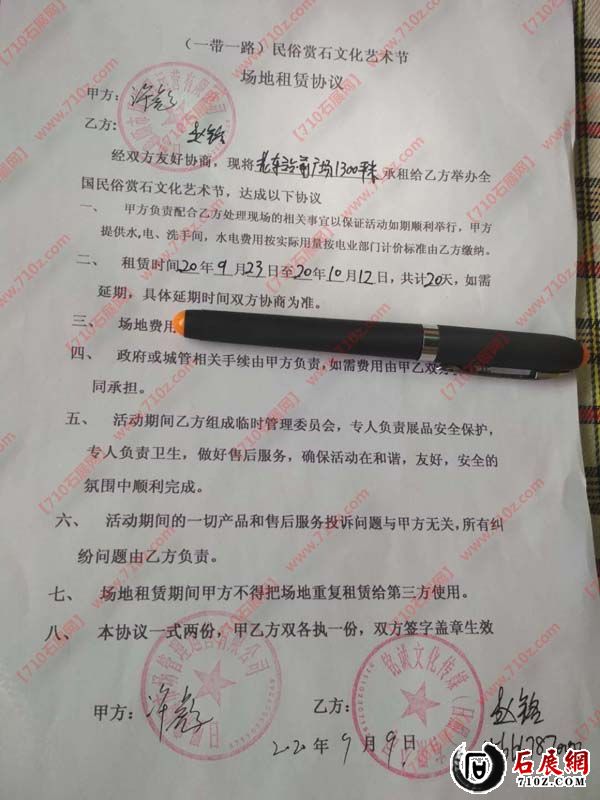 （一带一路）民俗赏石文化艺术节
场地租赁协议
甲方：
乙方：
经双方友好协商，现将 广场1300平米 承租给乙方举办全
国民俗赏石文化艺术节，达成以下协议
一、 甲方负责配合乙方处理现场的相关事宜以保证活动如期顺利举行，甲方
提供水,电、洗手间，水电费用按实际用量按电业部门计价标准由乙方缴纳。
二、 租赁时间20年9月23日至20年10月12日，共计20天，如需
延期，具体延期时间双方协商为准。
三、 场地费用
四、 政府或城管相关手续由甲方负责，如需费用由甲乙双
同承担。
五、 活动期间乙方组成临时管理委员会，专人负责展品安全保护，
专人负责卫生，做好售后服务，确保活动在和谐，友好，安全的
氛围中顺利完成。
六、 活动期间的一切产品和售后服务投诉问题与甲方无关，所有纠
纷问题由乙方负责。
七、 场地租赁期间甲方不得把场地重复租赁给第三方使用。
八、 本协议一式两份，甲乙方双各执一份，双方签字盖章生效
甲方：
乙方：
年9月9日
石展網
www.710z.com
【710石展网】